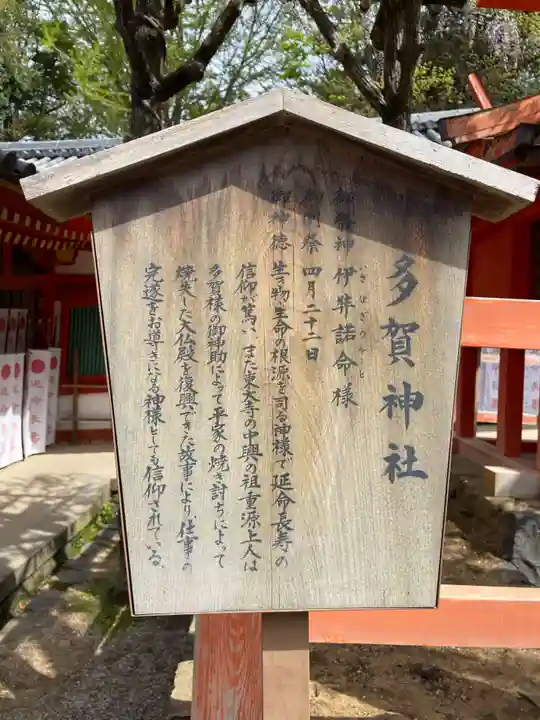 多賀神社
御祭神 伊弉諾命様
いざなぎのみこと
御例祭 四月二十二日
御神徳 生き物、生命の根源を司る神様で延命長寿の
信仰が篤い、また東大寺の中興の祖重源上人は
多賀様の御神助によって平家の焼き討ちによって
焼失した大仏殿を復興できた故事により、仕事の
完遂をお導きになる神様としても信仰されている。
延命長寿